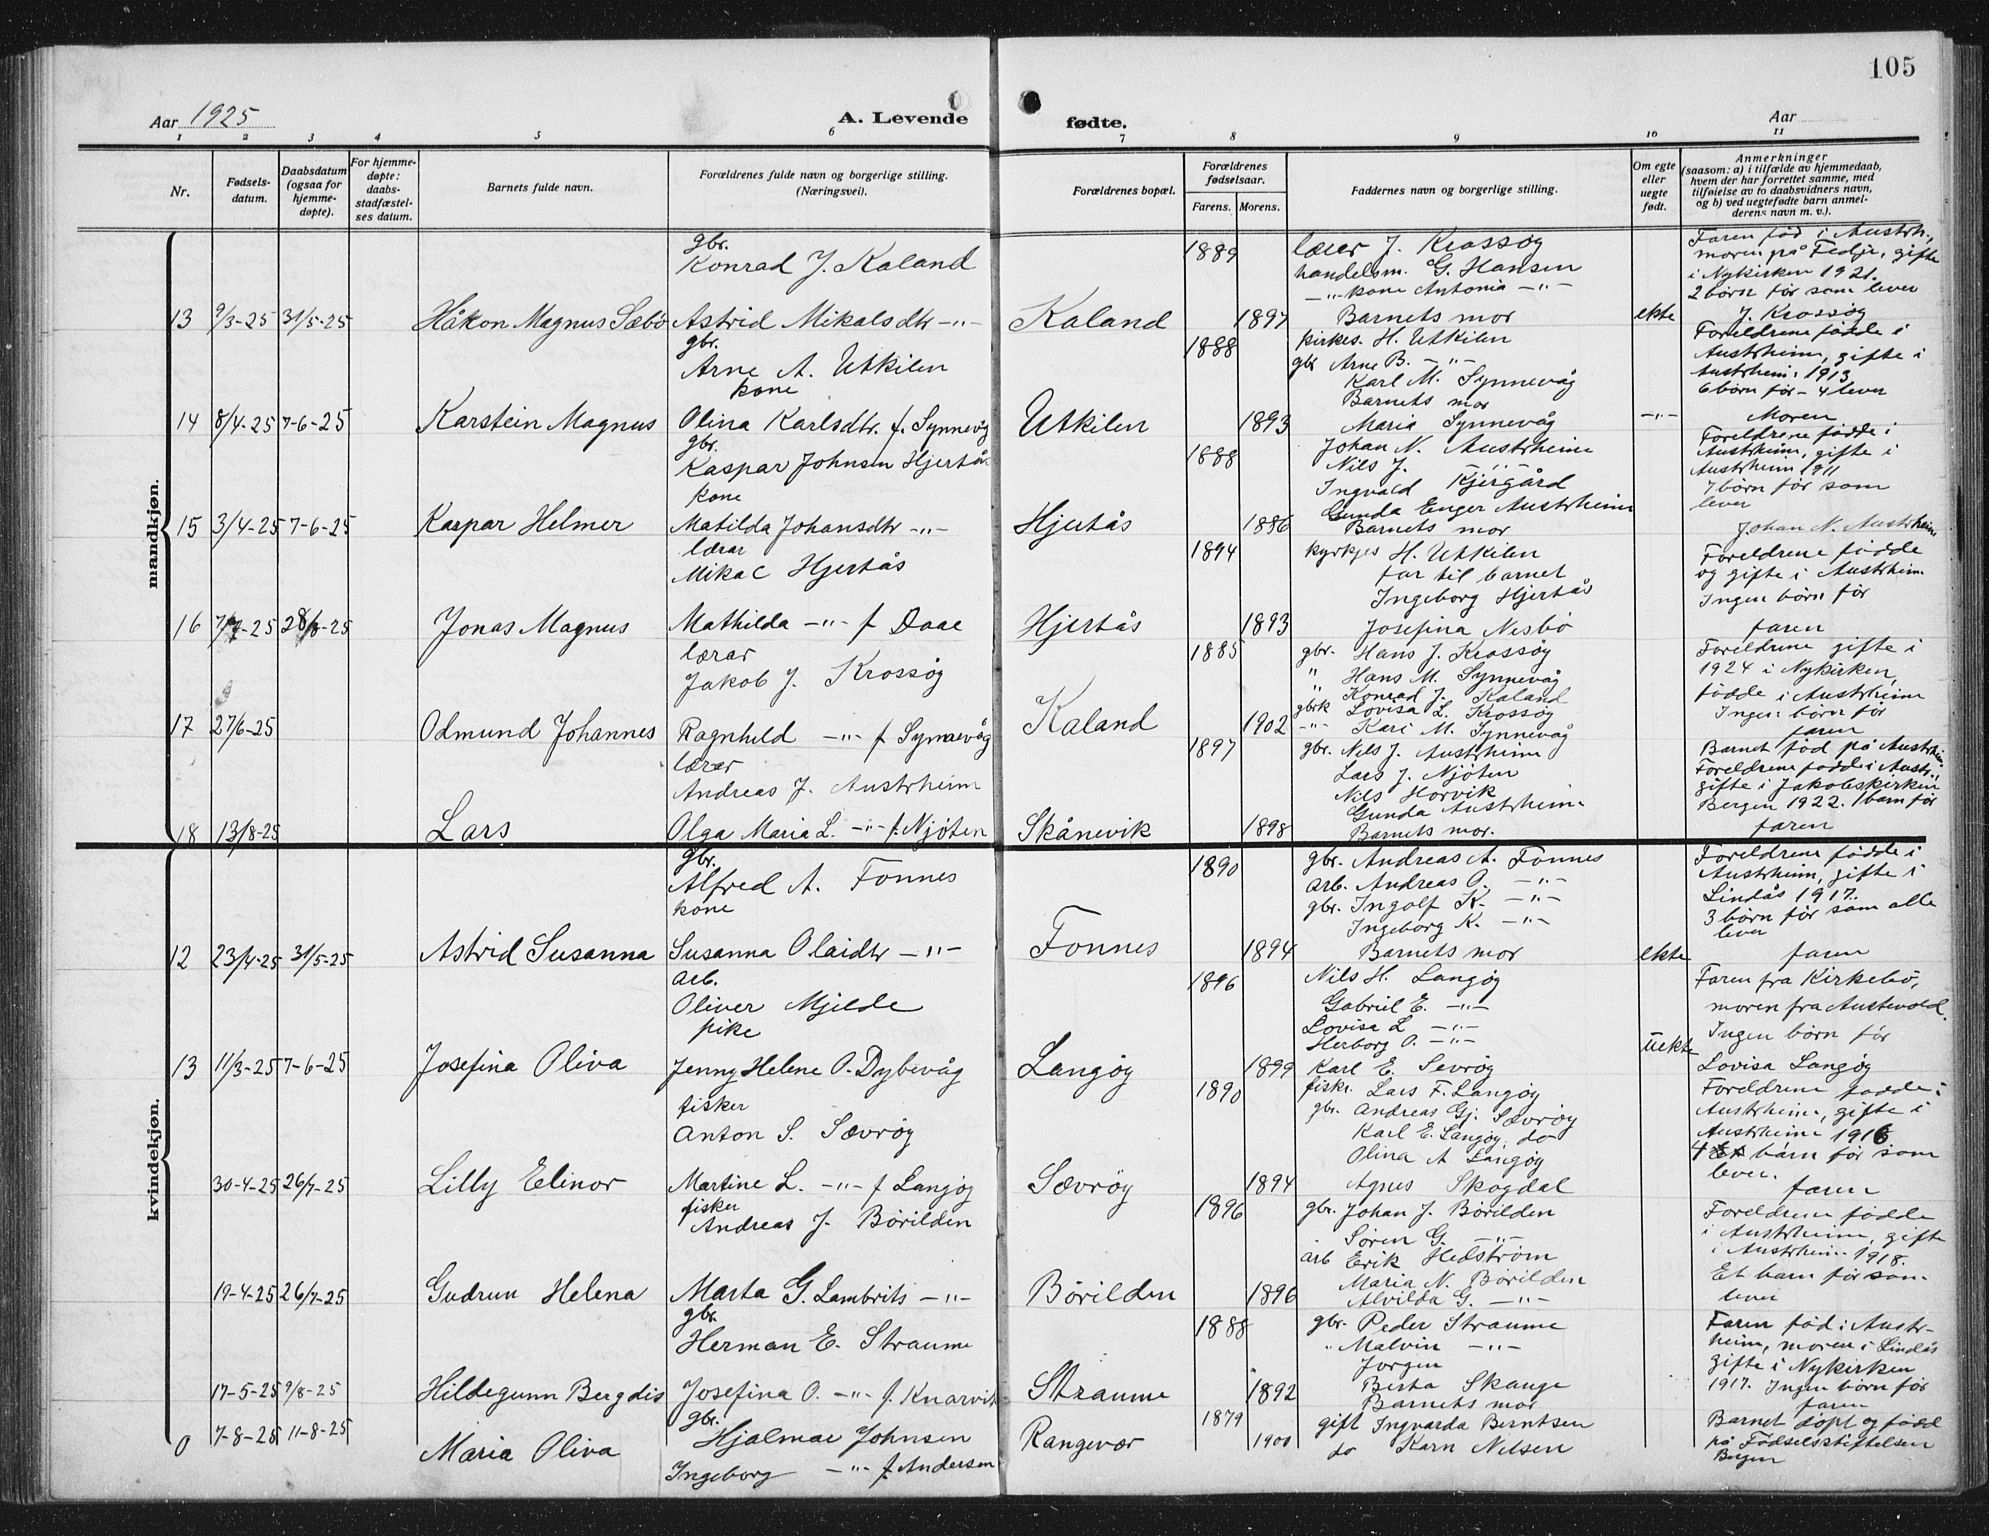 105
Aar 1925
A. Levende
fødte.
Aar
1 2 3 4 5 6 7 8 9 10 11
Nr.
Fødsels-
datum.
Daabsdatum
(ogsaa for
hjemme-
døpte).
For hjemme-
døpte:
daabs-
stadfæstel-
ses datum.
Barnets fulde navn.
Forældrenes fulde navn og borgerlige stilling.
(Næringsvei).
Forældrenes bopæl.
Forældrenes
fødselsaar.
Farens. Morens.
Faddernes navn og borgerlige stilling.
Om egte
eller
uegte
født.
Anmerkninger
(saasom: a) i tilfælde av hjemmedaab,
hvem der har forrettet samme, med
tilføielse av to daabsvidners navn,
og b) ved uegtefødte barn anmel-
derens navn m. v.).
mandkjøn.
13 9/3-25 31/5-25
Håkon Magnus Sæbø
gbr.
Konrad J. Kaland
Astrid Mikalsdtr -"-
Kaland
1889
1897
lærer J. Krossøy
handelsm. G. Hansen
-"- kone Antonia -"-
Barnets mor
ekte
Faren fød i Austrh.,
moren på Fedje, gifte
i Nykirken 1921.
2 børn før som lever
J. Krossøy
14 8/4-25 7-6-25
Karstein Magnus
gbr.
Arne A. Utkilen
kone
Olina Karlsdtr. f. Synnevåg
Utkilen
1888
1893
kirkes. H. Utkilen
gbr Arne B. -"-
Karl M. Synnevåg
Barnets mor
Maria Synnevåg
-"-
Foreldrene fødde i
Austrheim, gifte i
Austrheim 1913
6 børn før - 4 lever
Moren
15 3/4-25 7-6-25
Kaspar Helmer
gbr.
Kaspar Johnsen Hjertås
kone
Matilda Johansdtr -"-
Hjertås
1888
1886
Johan N. Austrheim
Nils J. -"-
Ingvald Kjirgård
Gunda Enger Austrheim
Barnets mor
Foreldrene fødde i
Austrheim, gifte i
Austrheim 1911
7 børn før som
lever
Johan N. Austrheim
16 7/7-25 28/8-25
Jonas Magnus
lærar
Mikal Hjertås
Mathilda -"- f Daae
Hjertås
1894
1893
kyrkjes H. Utkilen
far til barnet
Ingeborg Hjertås
Josefina Nesbø
Foreldrene fødde
og gifte i Austrheim
Ingen børn før
faren
17 27/6-25
Odmund Johannes
lærar
Jakob J. Krossøy
Ragnhild -"- f Synnevåg
Kaland
1885
1902
gbr. Hans J. Krossøy
" Hans M. Synnevåg
" Konrad J. Kaland
gbrk Lovisa L. Krossøy
-"- Kari M. Synnevåg
Foreldrene gifte i
1924 i Nykirken,
fødde i Austrheim
Ingen børn før
faren
18 13/8-25
Lars
lærer
Andreas J. Austrheim
Olga Maria L. -"- f. Njøten
Skånevik
1897
1898
gbr. Nils J. Austrheim
Lars J. Njøten
Nils Horvik
Gunda Austrheim
Barnets mor.
Barnet fød på Austrheim
Foreldrene fødde i Austr.,
gifte i Jakobskirken
Bergen 1922. 1 barn før
faren
kvindekjøn.
12 23/4-25 31/5-25
Astrid Susanna
gbr.
Alfred A. Fonnes
kone
Susanna Olaidtr -"-
Fonnes
1890
1894
gbr. Andreas A. Fonnes
arb. Andreas O. -"-
gbr. Ingolf K. -"-
Ingeborg K. -"-
Barnets mor
ekte
Foreldrene fødde i
Austrheim, gifte i
Lindås 1917.
3 børn før som alle
lever
faren
13 11/3-25 7-6-25
Josefina Oliva
arb.
Oliver Mjelde
pike
Jenny Helene O. Dybevåg
Langøy
1896
1899
Nils H. Langøy
Gabriel E. -"-
Lovisa L -"-
Herborg O. -"-
Karl E. Sevrøy
uekte
Faren fra Kirkebø,
moren fra Austevold.
Ingen børn før
Lovisa Langøy
30-4-25 26/7-25
Lilly Elinor
fisker
Anton S. Sævrøy
Martine L. -"- f Langøy
Sævrøy
1890
1894
fiskr. Lars F. Langøy
gbr. Andreas Gj. Sævrøy
Karl E. Langøy, do
Olina A Langøy
Agnes Skogdal
Foreldrene fødde i
Austrheim, gifte i
Austrheim 1916
4 barn før som
lever.
faren
19-4-25 26/7-25
Gudrun Helena
fisker
Andreas J. Børilden
Marta G. Lambrits -"-
Børilden
1896
1896
gbr. Johan J. Børilden
Søren G. -"-
arb Erik Hedstrøm
Maria N. Børilden
Alvilda G. -"-
Foreldrene fødde
i Austrheim, gifte
i Austrheim 1918.
Et barn før som
lever
17-5-25 9/8-25
Hildegunn Bergdis
gbr.
Herman E. Straume
Josefina O. -"- f. Knarvik
Straume
1888
1892
gbr. Peder Straume
" Malvin -"-
Jørgen
Berta Skauge
Barnets mor
Faren fød i Austr-
heim, moren i Lindås
gifte i Nykirken
1917. Ingen børn før
faren
0 7-8-25 11-8-25
Maria Oliva
gbr.
Hjalmar Johnsen
Ingeborg -"- f. Andersen
Rangevær
1879
1900
gift Ingvarda Berntsen
do Karn Nilsen
Barnet døpt og fødd
på Fødselsstiftelsen
Bergen